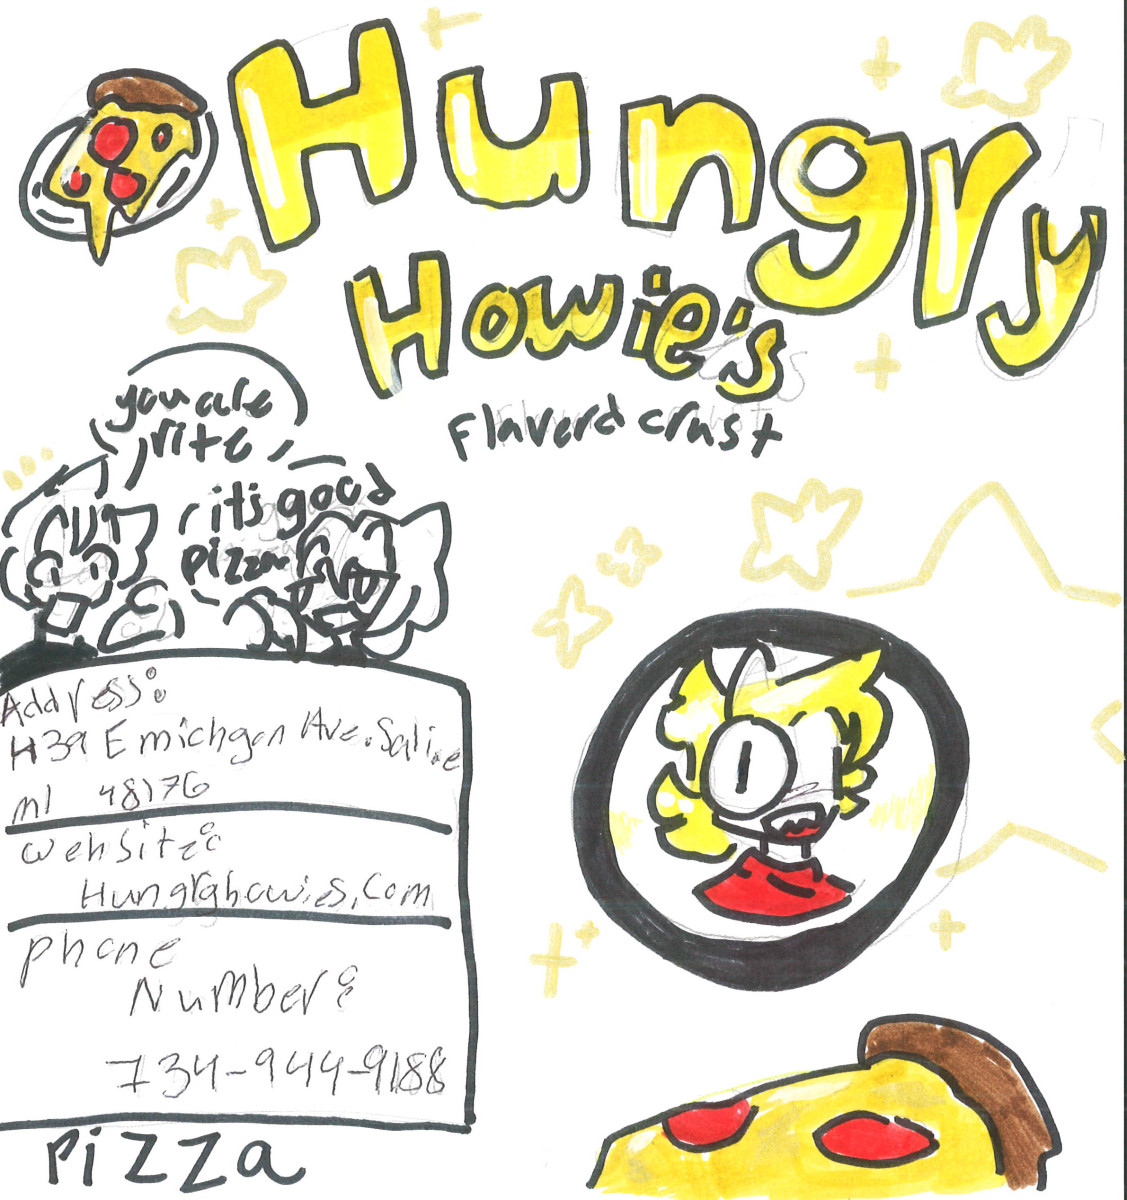 Hungry
Howie's
Flaverd crust
you are
rite
it's good
pizza
Address:
439 E michgan Ave. Saline
mI 48176
website:
Hungryhowies.com
phone
Number:
734-944-9188
pizza